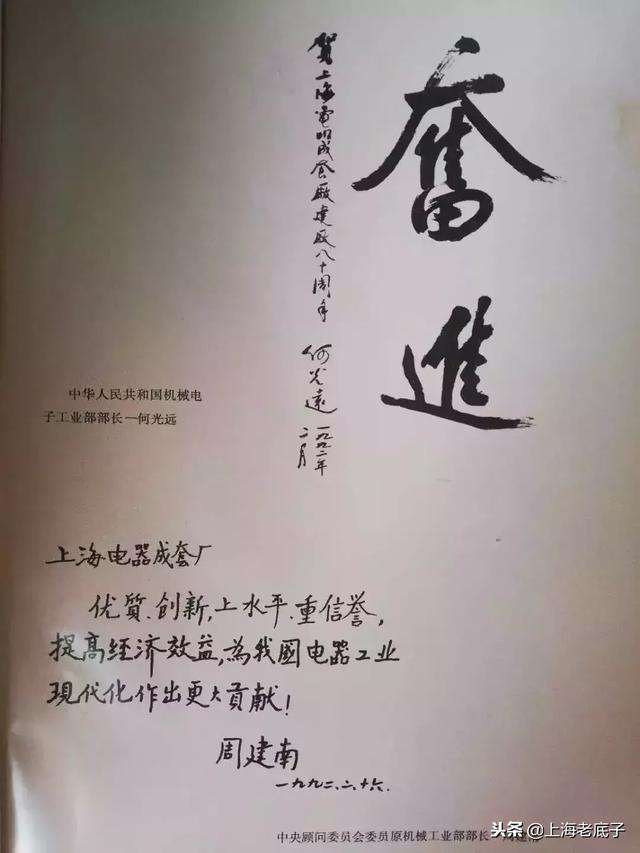 奮進
賀上海電器成套廠建廠八十周年
何光遠
一九九二年
二月
中华人民共和国机械电
子工业部部长—何光远
上海电器成套厂
优質、创新,上水平、重信誉,
提高经济效益,為我國电器工业
現代化作出更大貢献!
周建南
一九九二、二、十六.
中央顾问委员会委员原机械工业部部长
头条 @上海老底子